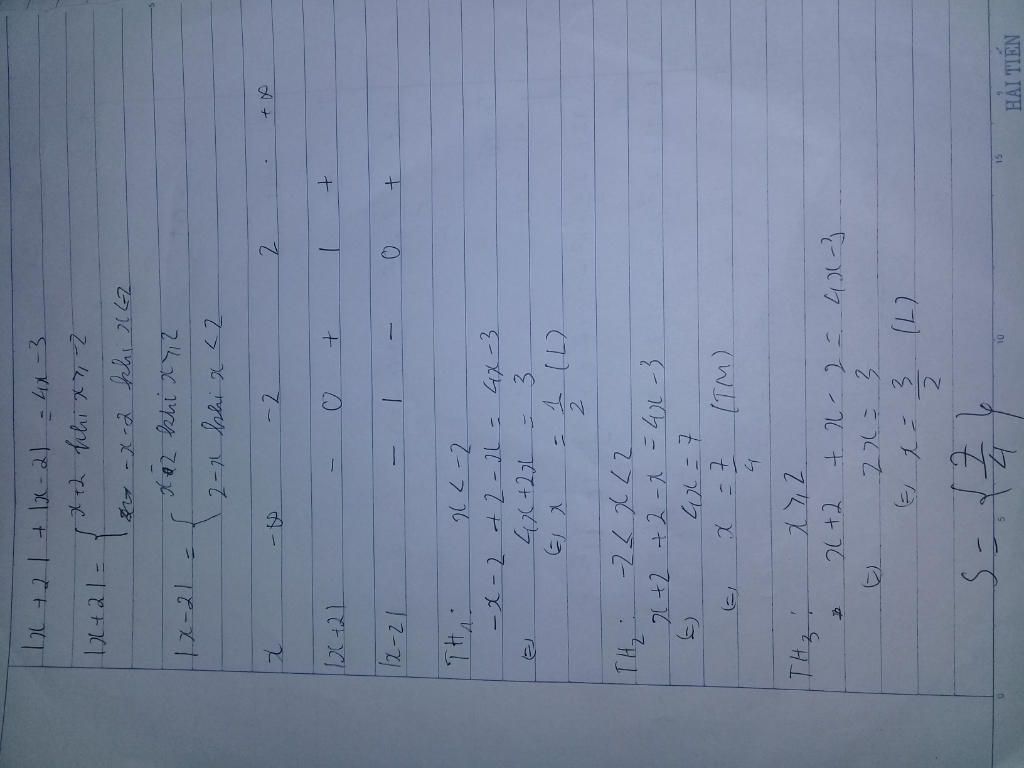 |x+2| + |x-2| = 4x-3
|x+2| = { x+2 khi x ≥ -2
-x-2 khi x<-2
|x-2| = { x-2 khi x ≥ 2
2-x khi x < 2
x -∞ -2 2 +∞
|x+2| - 0 + | +
|x-2| - | - 0 +
TH1: x < -2
-x-2 + 2-x = 4x-3
(=) 4x+2x = 3
(=) x = 1/2 (L)
TH2: -2 ≤ x < 2
x+2 + 2-x = 4x-3
(=) 4x = 7
(=) x = 7/4 (TM)
TH3: x ≥ 2
x+2 + x-2 = 4x-3
(=) 2x = 3
(=) x = 3/2 (L)
S = { 7/4 }
HẢI TIẾN
0 5 10 15